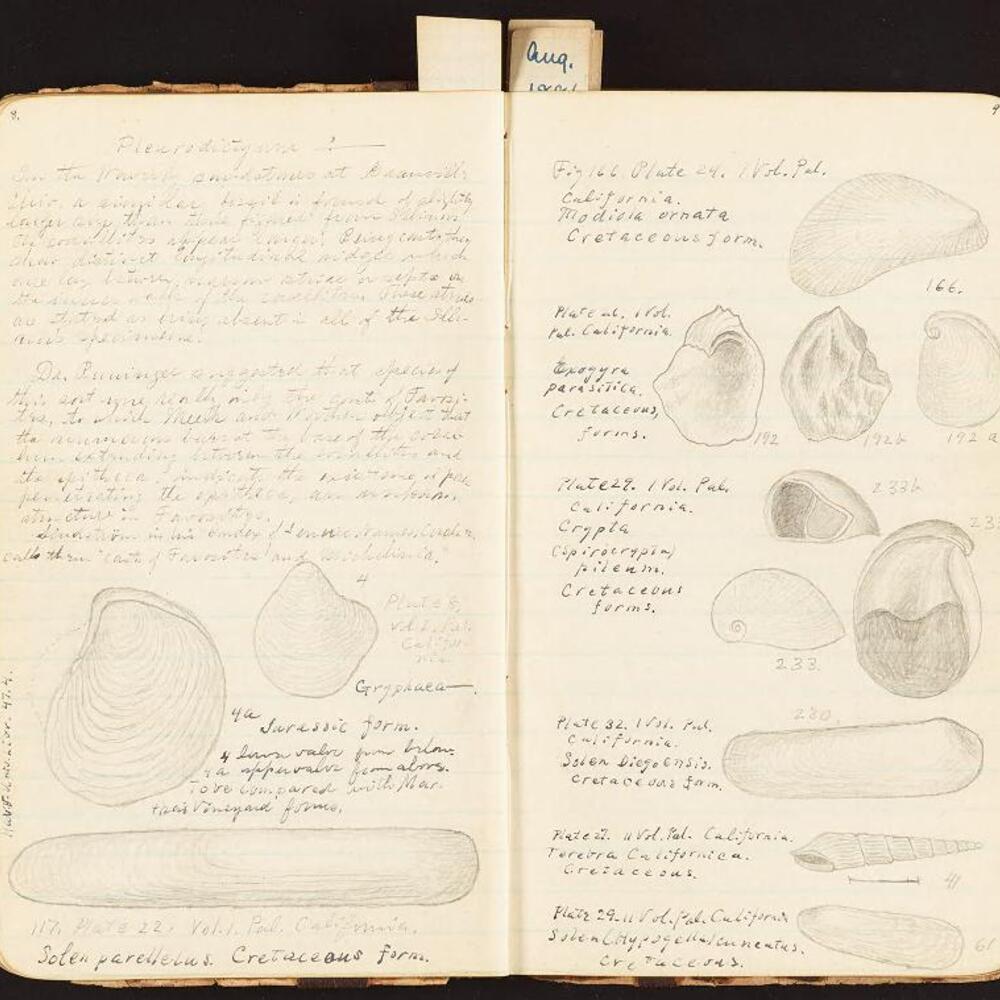 Aug.
8.
Pleurodictyum ?
In the Waverly sandstones at
Ohio, a singular fossil is found of slightly
larger size than those figured from Illinois
The corallites appear longer. Being casts, they
show distinct longitudinal ridges which
once lay between, narrow striae or septa on
the inner walls of the corallites. These striae
are stated as being absent in all of the Illi-
nois specimens.
Dr. Rominger suggested that species of
this sort were really only the casts of Favosi-
tes, to which Meek and Worthen object that
the numerous bars at the base of the
extending between the corallites and
the epitheca, indicate the existence of pores
penetrating the epitheca, an unknown
structure in Favosites.
Lindström in his Index of
calls them "casts of Favosites" and "Michelinia."
4
Plate 8,
Vol. 1. Pal.
Califor-
nia.
Gryphaea
4a
Jurassic form.
4 lower valve from below.
4a upper valve from above.
To be compared with Mar-
thas Vineyard forms.
117. Plate 22. Vol. 1. Pal. California.
Solen parellelus. Cretaceous form.
9
Fig 166. Plate 24. 1 Vol. Pal.
California.
Modiola ornata
Cretaceous form.
166.
Plate 26. 1 Vol.
Pal. California.
Exogyra
parasitica.
Cretaceous,
forms.
192
192b
192a
Plate 29. 1 Vol. Pal.
California.
Crypta
(Spirocrypta)
pileum.
Cretaceous
forms.
233b
233.
230.
Plate 32. 1 Vol. Pal.
California.
Solen Diegoensis.
Cretaceous form.
Plate 27. 11 Vol. Pal. California.
Terebra Californica.
Cretaceous.
41
Plate 29. 11 Vol. Pal. California
Solen (Hypogella) cuneatus.
Cretaceous.
61